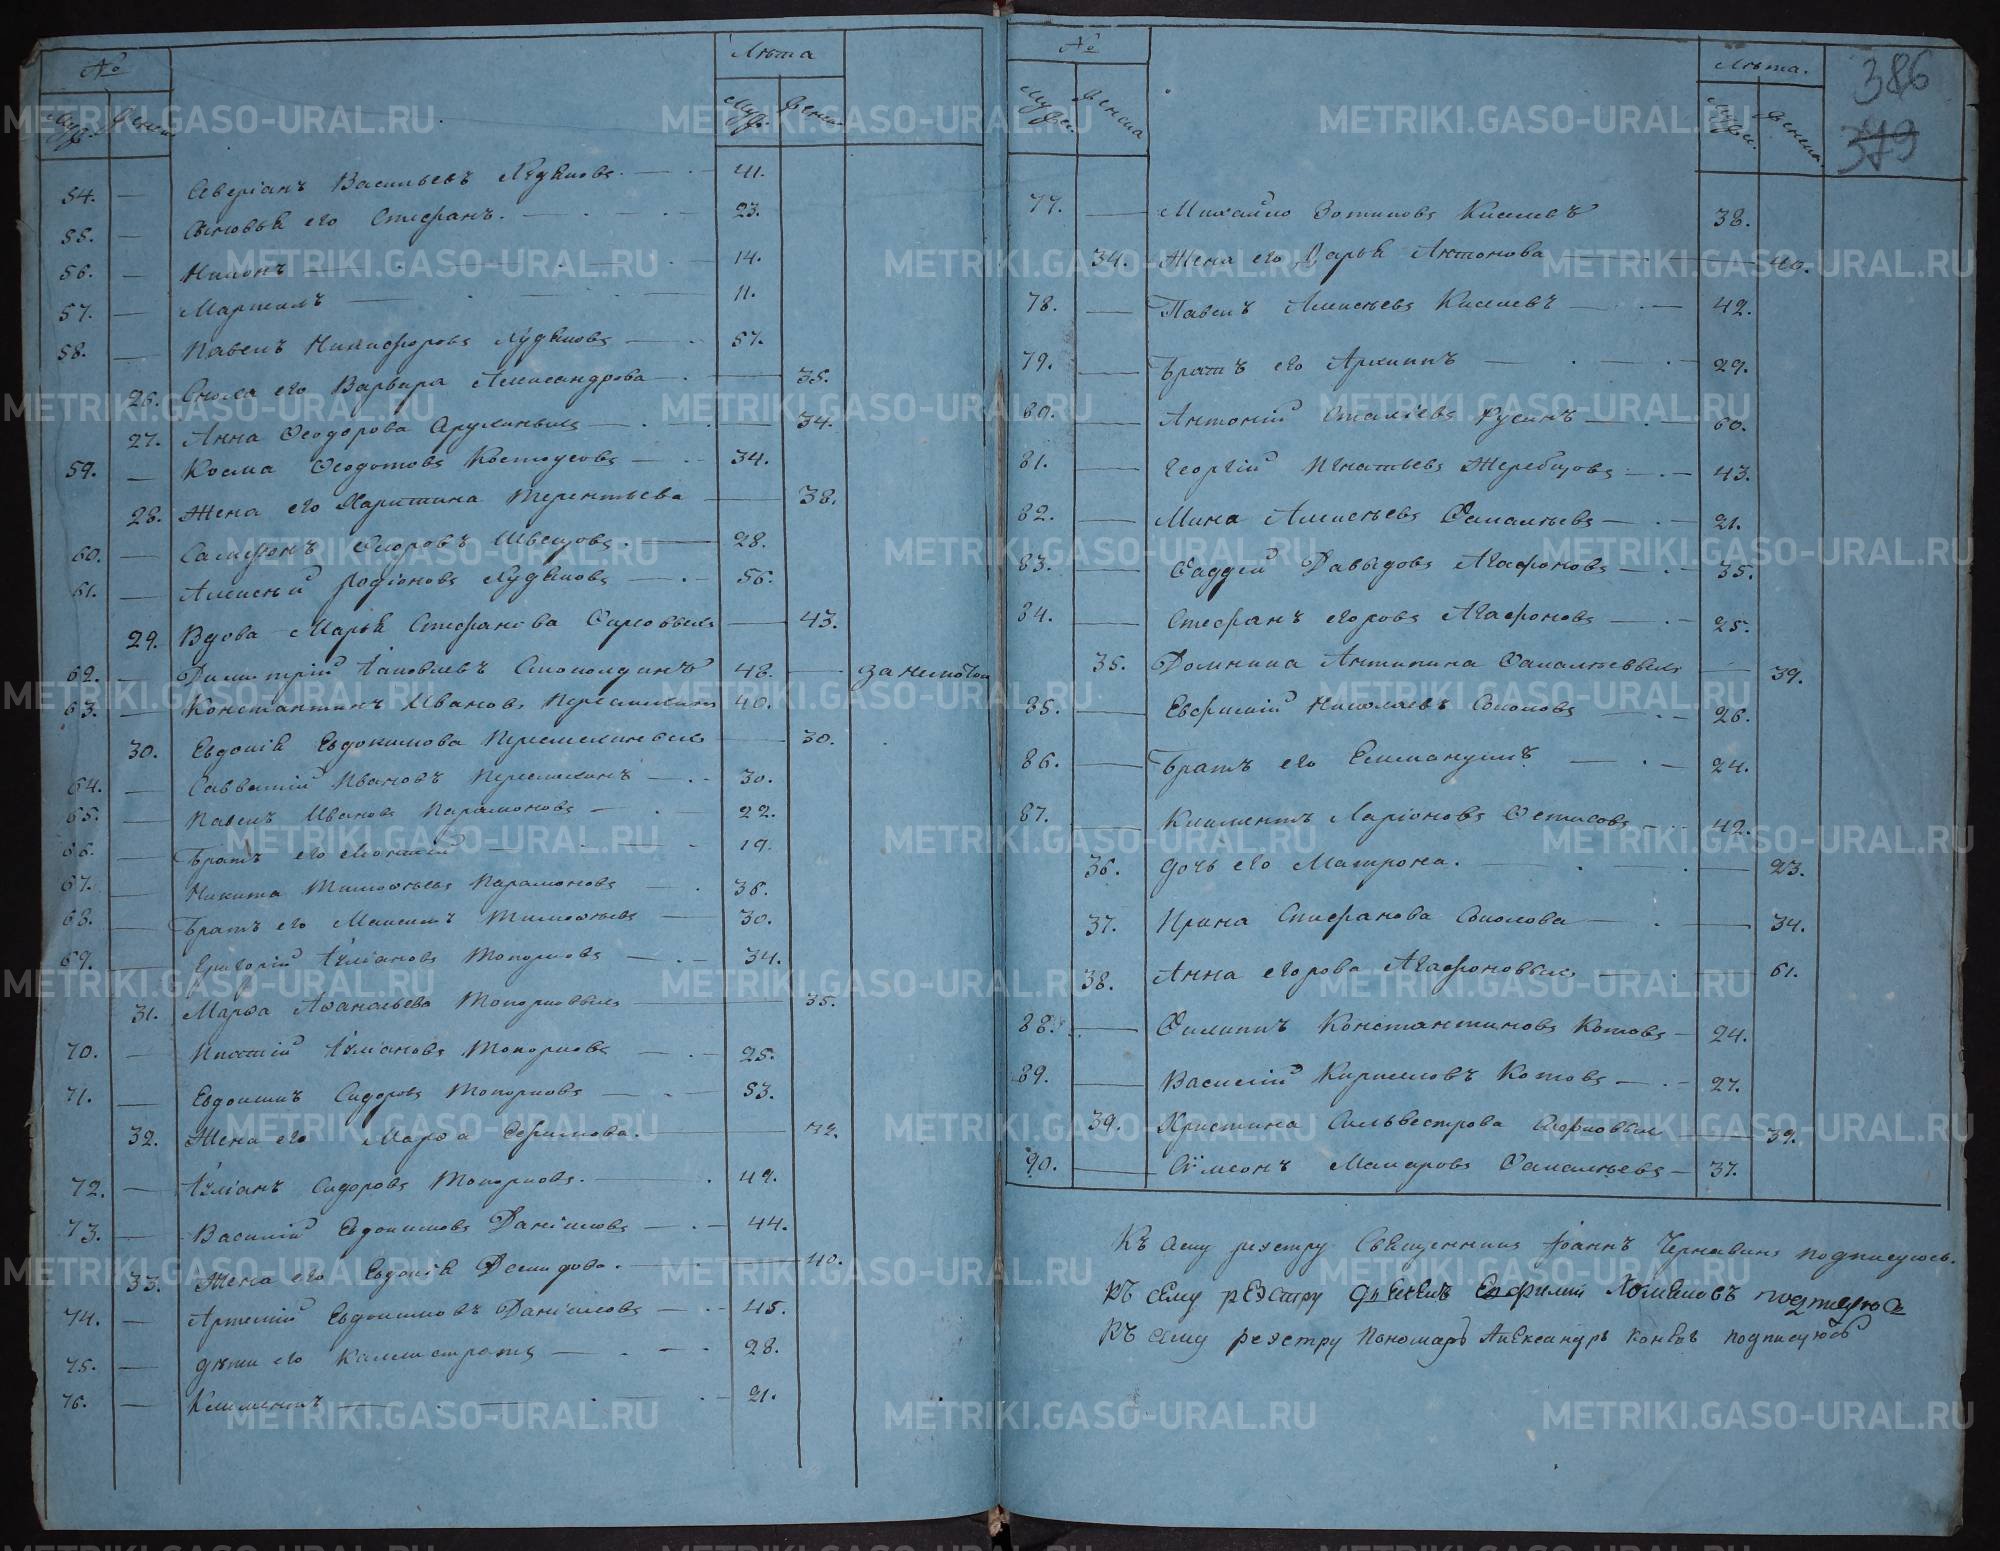 № Лѣта
Муж. Женск. Муж. Женск.
54. — Северіанъ Васильевъ Худяковъ. — 41.
55. — Сыновья его Стефанъ. — 23.
56. — Нилонъ — 14.
57. — Мартинъ — 11.
58. — Павелъ Никифоровъ Худяковъ — 57.
26. Сноха его Варвара Александрова — 35.
27. Анна Ѳеодорова — 34.
59. — Косма Ѳеодотовъ Костоусовъ — 34.
28. Жена его Харитина Терентьева — 38.
60. — Сампсонъ Швецовъ. — 28.
61. — Алексѣй Родіоновъ Худяковъ — 56.
29. Вдова Марья Стефанова — 43.
62. — Димитрій Іаковлевъ — 48. —
63. — Константинъ Ивановъ — 40.
30. Евдокія Евдокимова — 30.
64. — Савватій Ивановъ — 30.
65. — Павелъ Ивановъ Парамоновъ — 22.
66. — Братъ его — 19.
67. — Никита Тимоѳѣевъ Парамоновъ — 36.
68. — Братъ его Максимъ Тимоѳѣевъ — 30.
69. — Григорій Іуліановъ Топорковъ — 34.
31. Марѳа Аѳанасьева Топорковыхъ — 35.
70. — Іуліановъ Топорковъ — 25.
71. — Евдокимъ Сидоровъ Топорковъ — 53.
32. Жена его Марѳа Ефимова. — 42.
72. — Іуліанъ Сидоровъ Топорковъ. — 49.
73. — Василій Евдокимовъ Даніиловъ — 44.
33. Жена его Евдокія Демидова. — 40.
74. — Артемій Евдокимовъ Даніиловъ — 45.
75. — Дѣти его Каллистратъ — 28.
76. — Климентъ — 21.
386
379
№ Лѣта.
Мужеск. Женска Мужеск. Женска.
77. — Михайло Зотиковъ Киселевъ 38.
34. Жена его Дарья Антонова — 40.
78. — Павелъ Алексѣевъ Киселевъ — 42.
79. — Братъ его Архиппъ — 29.
80. — Антоній Русинъ — 60.
81. — Георгій Игнатьевъ Жеребцовъ — 43.
82. — Мина Алексѣевъ — 21.
83. — Ѳаддей Давыдовъ Агафоновъ — 35.
84. — Стефанъ Егоровъ Агафоновъ — 25.
35. Домника Антипина — 39.
85. — Евфимій Николаевъ Соколовъ — 26.
86. — Братъ его Еммануилъ — 24.
87. — Климентъ Ларіоновъ — 42.
36. Дочь его Матрона. — 23.
37. Ирина Стефанова Соколова — 34.
38. Анна Егорова Агафоновыхъ — 61.
88. — Филиппъ Константиновъ Котовъ — 24.
89. — Василій Кириловъ Котовъ — 27.
39. Христина Сильвестрова — 39.
90. — Сѵмеонъ Макаровъ — 37.
Къ сему реэстру Священникъ Іоаннъ Чернавинъ подписуюсь.
Къ сему реэстру дьячекъ подписуюсь
Къ сему реэстру Пономарь Александръ Коневъ подписуюсь
METRIKI.GASO-URAL.RU